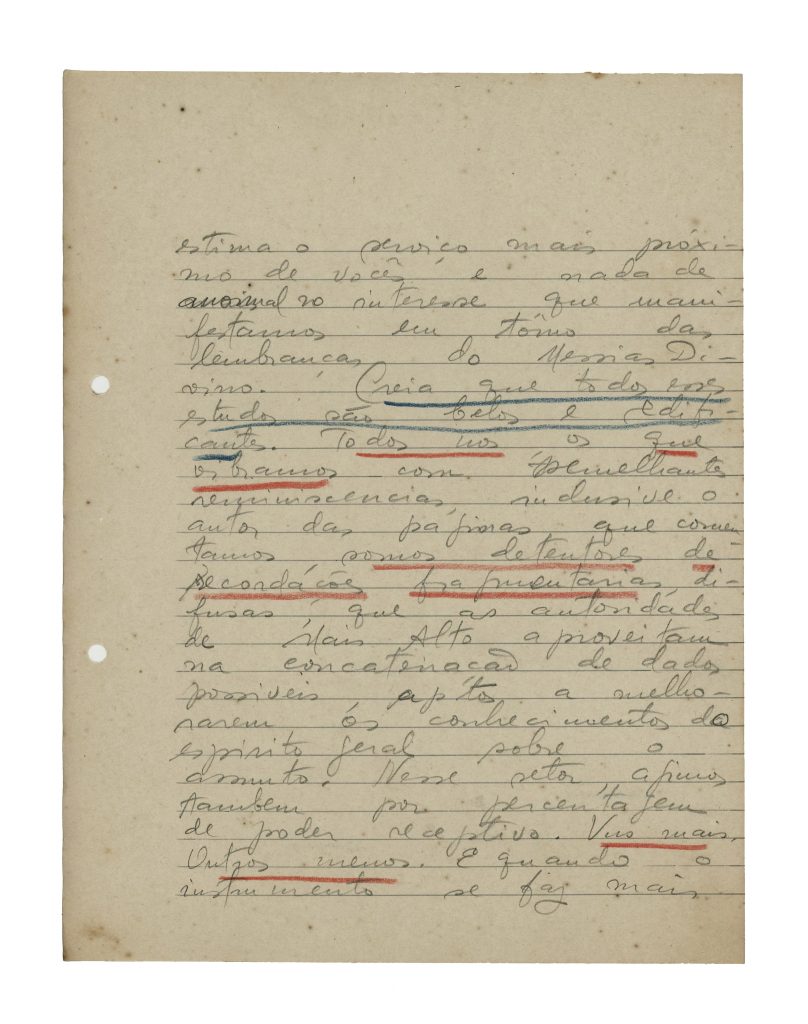 estima o serviço mais próxi-
mo de vocês, e nada de
anormal no interesse que mani-
festamos em tôrno das
lembranças do Messias Di-
vino. Creia que todos esses
estudos são belos e edifi-
cantes. Todos nos os que
vibramos com semelhantes
reminiscencias, inclusive o
autor das páginas que comen
tamos somos detentores de-
recordações fragmentarias, di-
fusas, que as autoridades
de Mais Alto aproveitam
na concatenação de dados
possiveis aptos a melho-
rarem os conhecimentos do
espirito geral sobre o
assunto. Nesse setor, agimos
tambem por percentagem
de poder receptivo. Uns mais.
Outros menos. E quando o
instrumento se faz mais